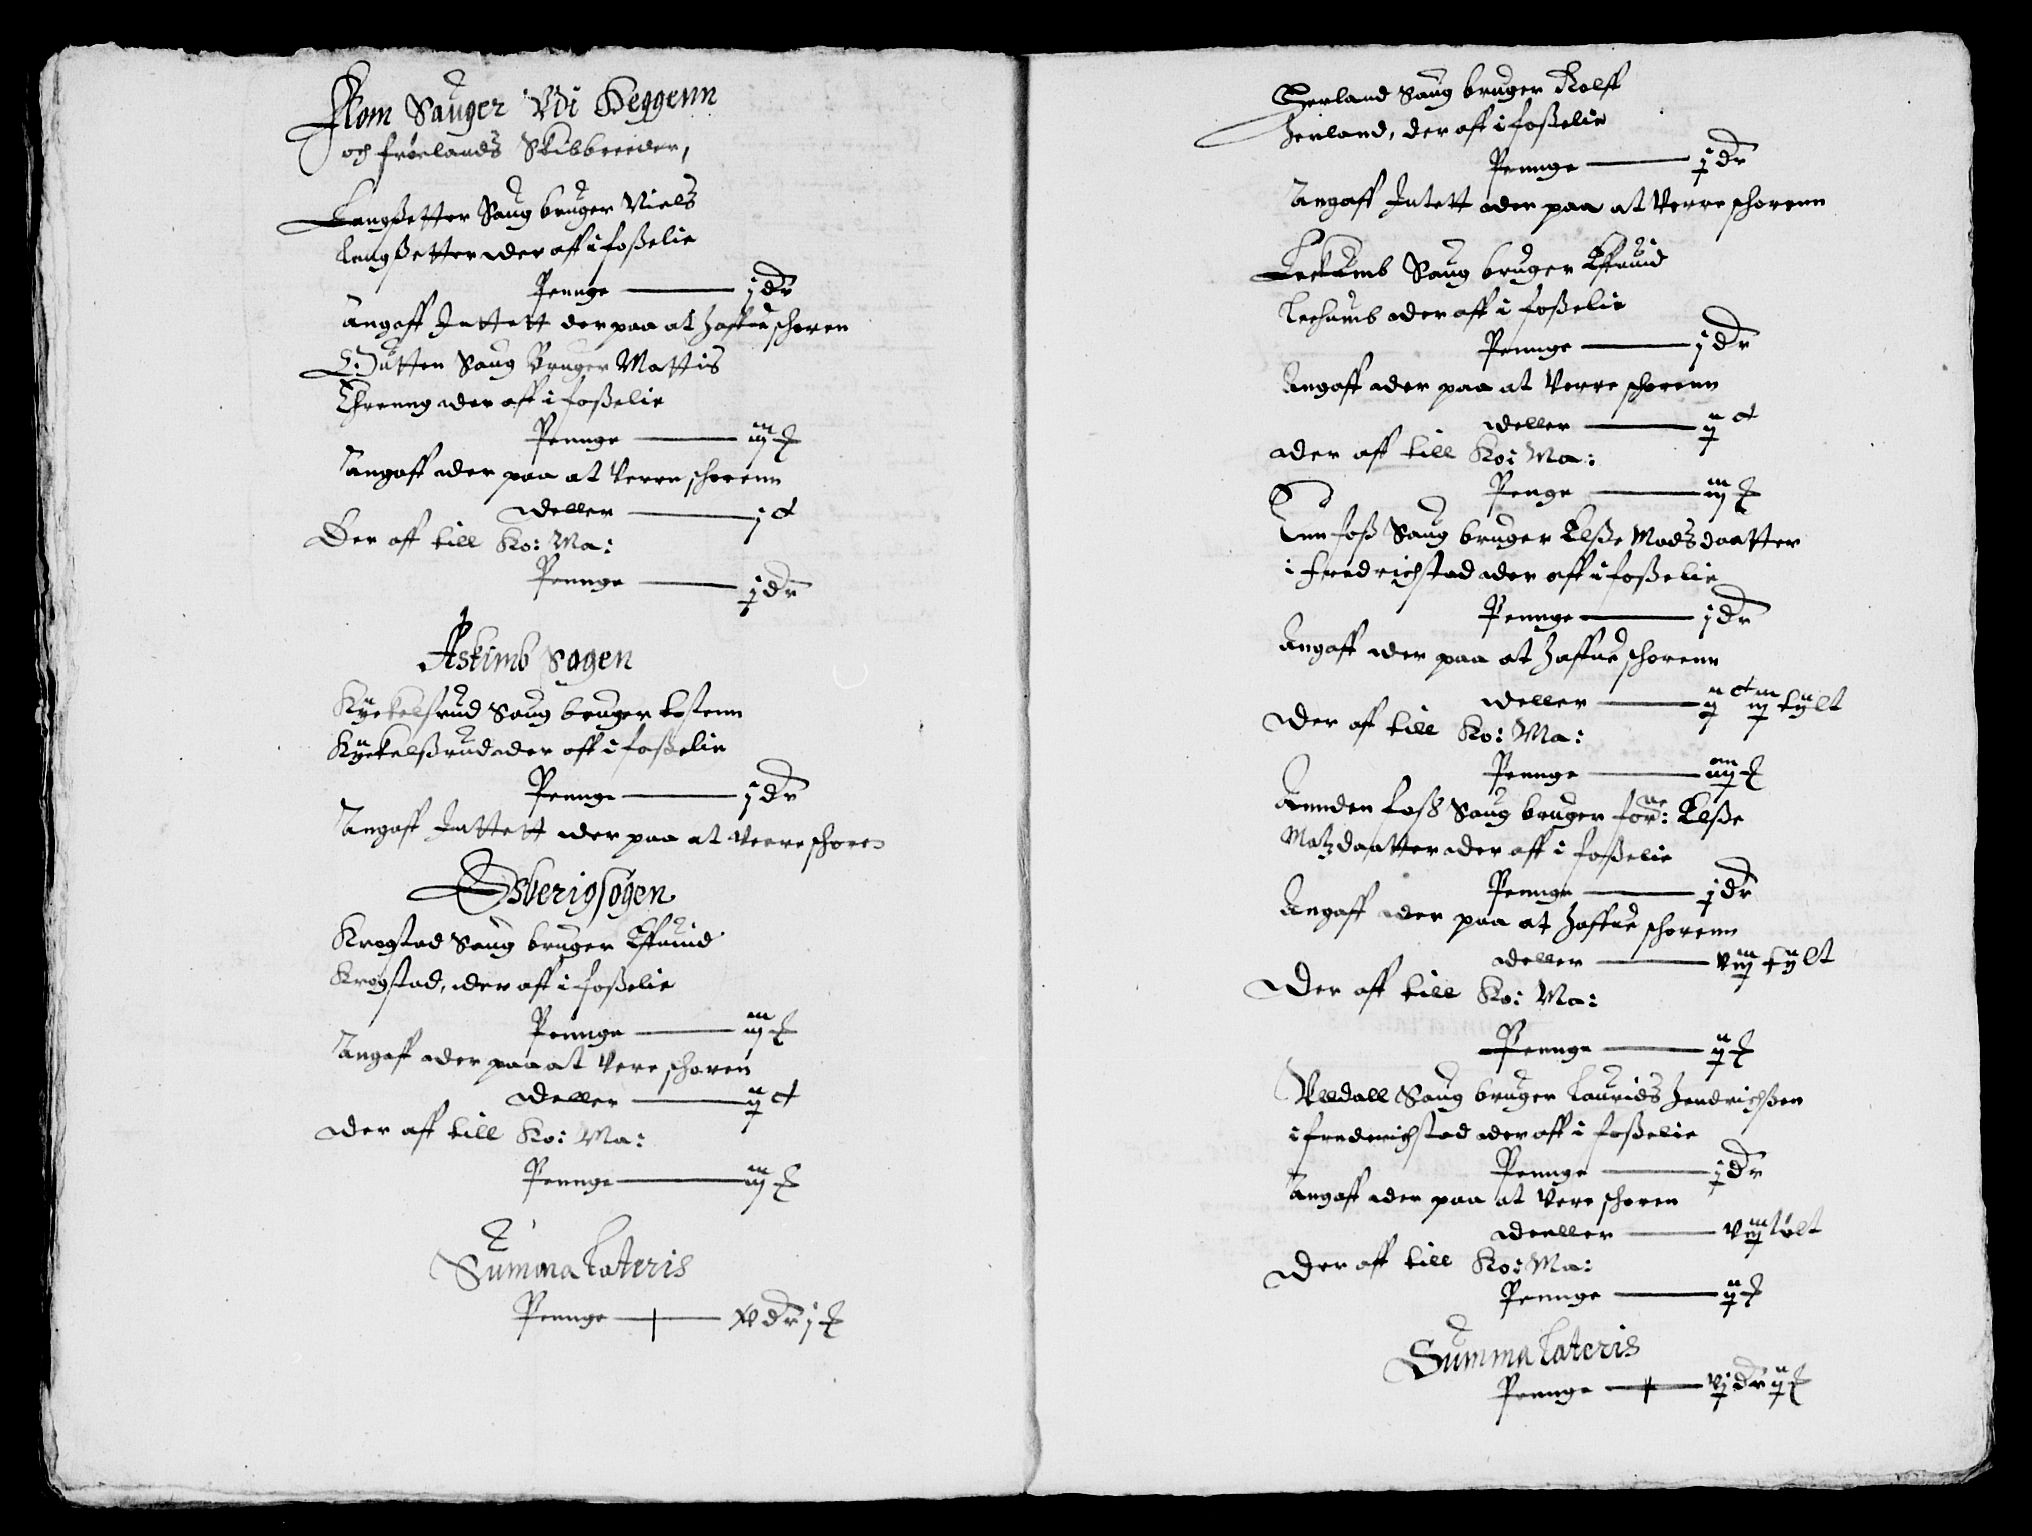 Flom Sauger Vdi Heggenn
och frørlands Skibbreeder,
Langsetter Saug bruger Niels
Langßetter der aff i foßelie
Pennge — j dr
Angaff Inttett der paa at haffue schoren
Saug Bruger Mattis
der aff i foßelie
Pennge — iij ß
Angaff der paa at verre schorenn
deller — j c
Der aff till Ko: Ma:
Pennge — j dr
Askimb sogen
Kyckelsrud Saug bruger Tostenn
Kyckelßrud der aff i foßelie
Pennge — j dr
Angaff Inttett der paa at verre schoren
Esberigsogen
Krogstad Saug bruger Effuind
Krogstad, der aff i foßelie
Pennge — iij ß
Angaff der paa at vere schoren
deller — ij c
der aff till Ko: Ma:
Pennge — iij ß
Summa Lateris
Pennge — xv dr j ß
Herland Saug bruger Rolff
Herland, der aff i foßelie
Pennge — j dr
Angaff Intett der paa at verre schorenn
Leckumb Saug bruger Effuind
Lechumb der aff i foßelie
Pennge — j dr
Angaff der paa at verre schorenn
deller — ij c
der aff till Ko: Ma:
Penge — iij ß
foß Saug bruger Elße Madsdaatter
i fredrichstad der aff i foßelie
Pennge — j dr
Angaff der paa at haffue schorenn
deller — ij c iij tylt
Der aff till Ko: Ma:
Pennge — iiij ß
Annden foß Saug bruger forne: Elße
Matzdaatter der aff i foßelie
Pennge — j dr
Angaff der paa at haffue schorenn
deller — viij tylt
Der aff till Ko: Ma:
Pennge — ij ß
Vlldall Saug bruger Laurids Hendrichßen
i frederichstad der aff i foßelie
Pennge — j dr
Angaff der paa at vere schoren
deeller — viij tølt
Der aff till Ko: Ma:
Pennge — ij ß
Summa Lateris
Pennge — vj dr ij ß